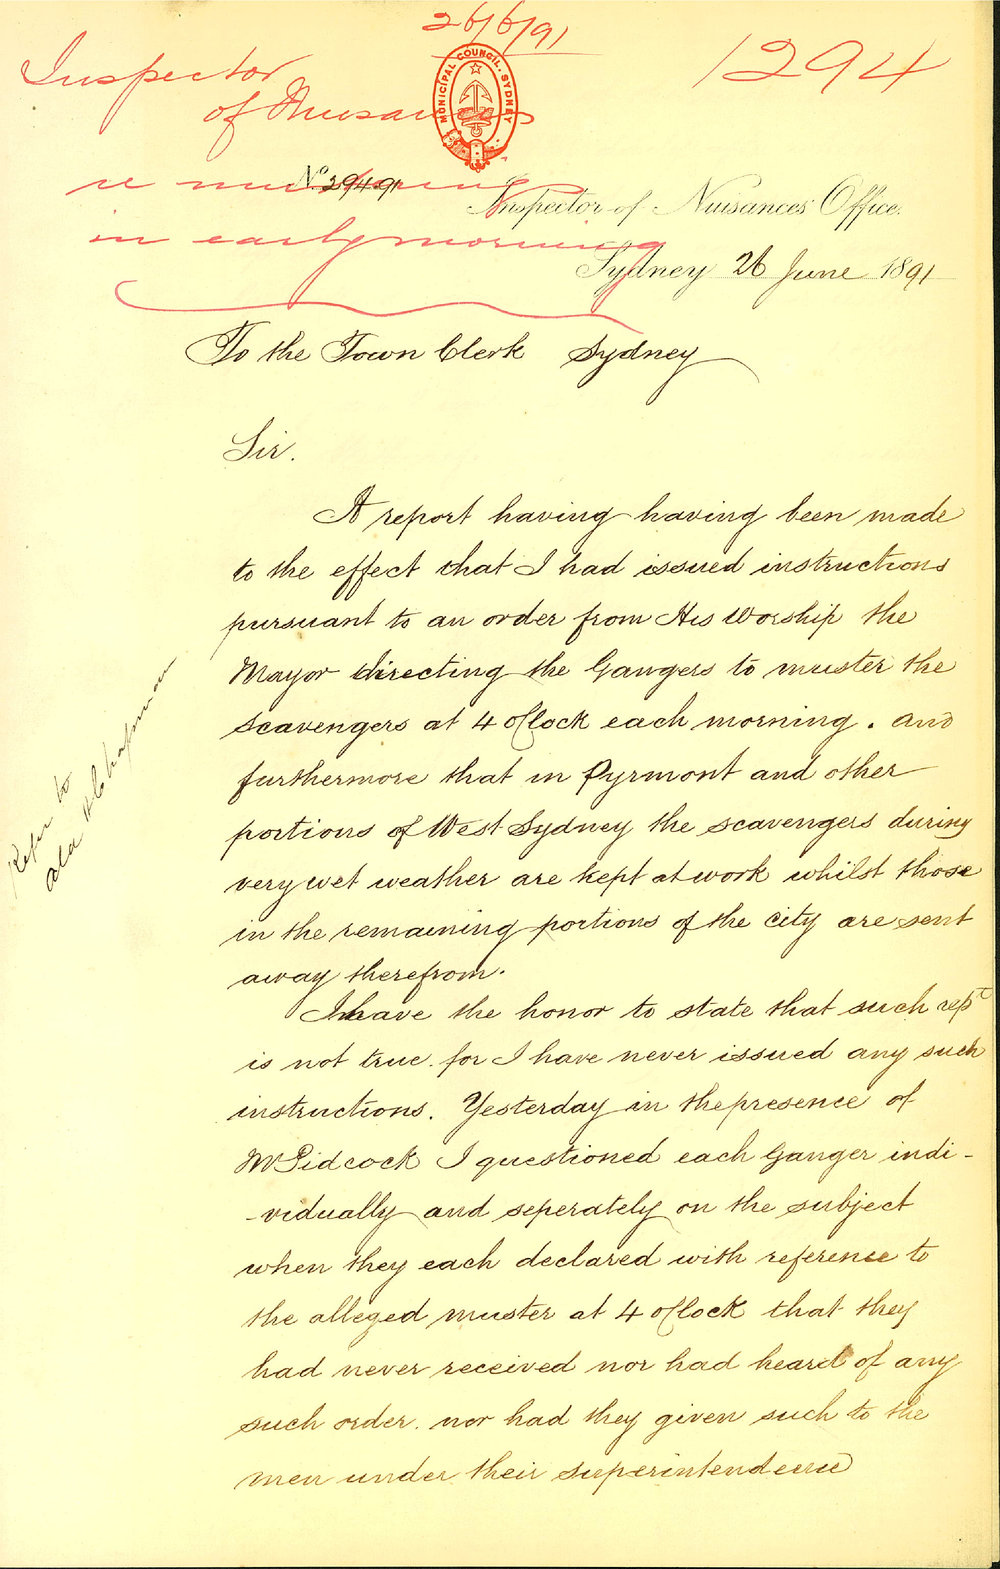 26/6/91
1294
Inspector
of Nuisances
re mustering
in early morning
MUNICIPAL COUNCIL. SYDNEY
No 294/91
Inspector of Nuisances Office.
Sydney 26 June 1891
To the Town Clerk Sydney
Sir.
A report having having been made
to the effect that I had issued instructions
pursuant to an order from His Worship the
Mayor directing the Gangers to muster the
scavengers at 4 oClock each morning. and
furthermore that in Pyrmont and other
portions of West Sydney the scavengers during
very wet weather are kept at work whilst those
in the remaining portions of the city are sent
away therefrom.
I have the honor to state that such rept
is not true. for I have never issued any such
instructions. Yesterday in the presence of
Mr Pidcock I questioned each Ganger indi-
-vidually and seperately on the subject
when they each declared with reference to
the alleged muster at 4 oClock that they
had never received nor had heard of any
such order. nor had they given such to the
men under their superintendence
Refer to
Ald Chapman